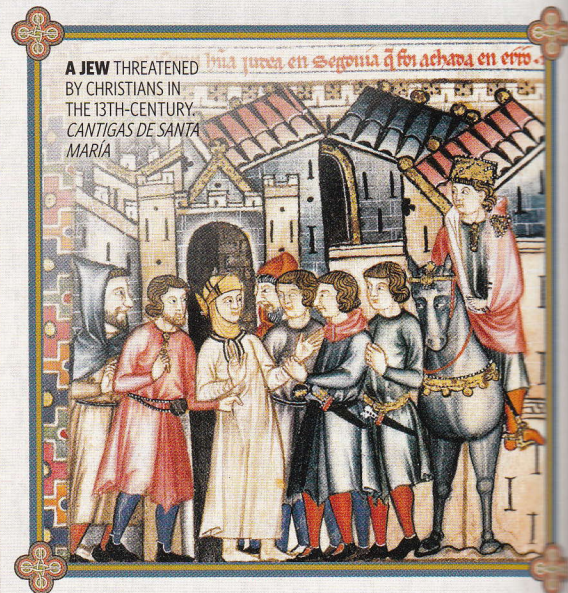 A JEW THREATENED
BY CHRISTIANS IN
THE 13TH-CENTURY.
CANTIGAS DE SANTA
MARÍA
hũa judea en Segouia q̃ foi achada en erro.